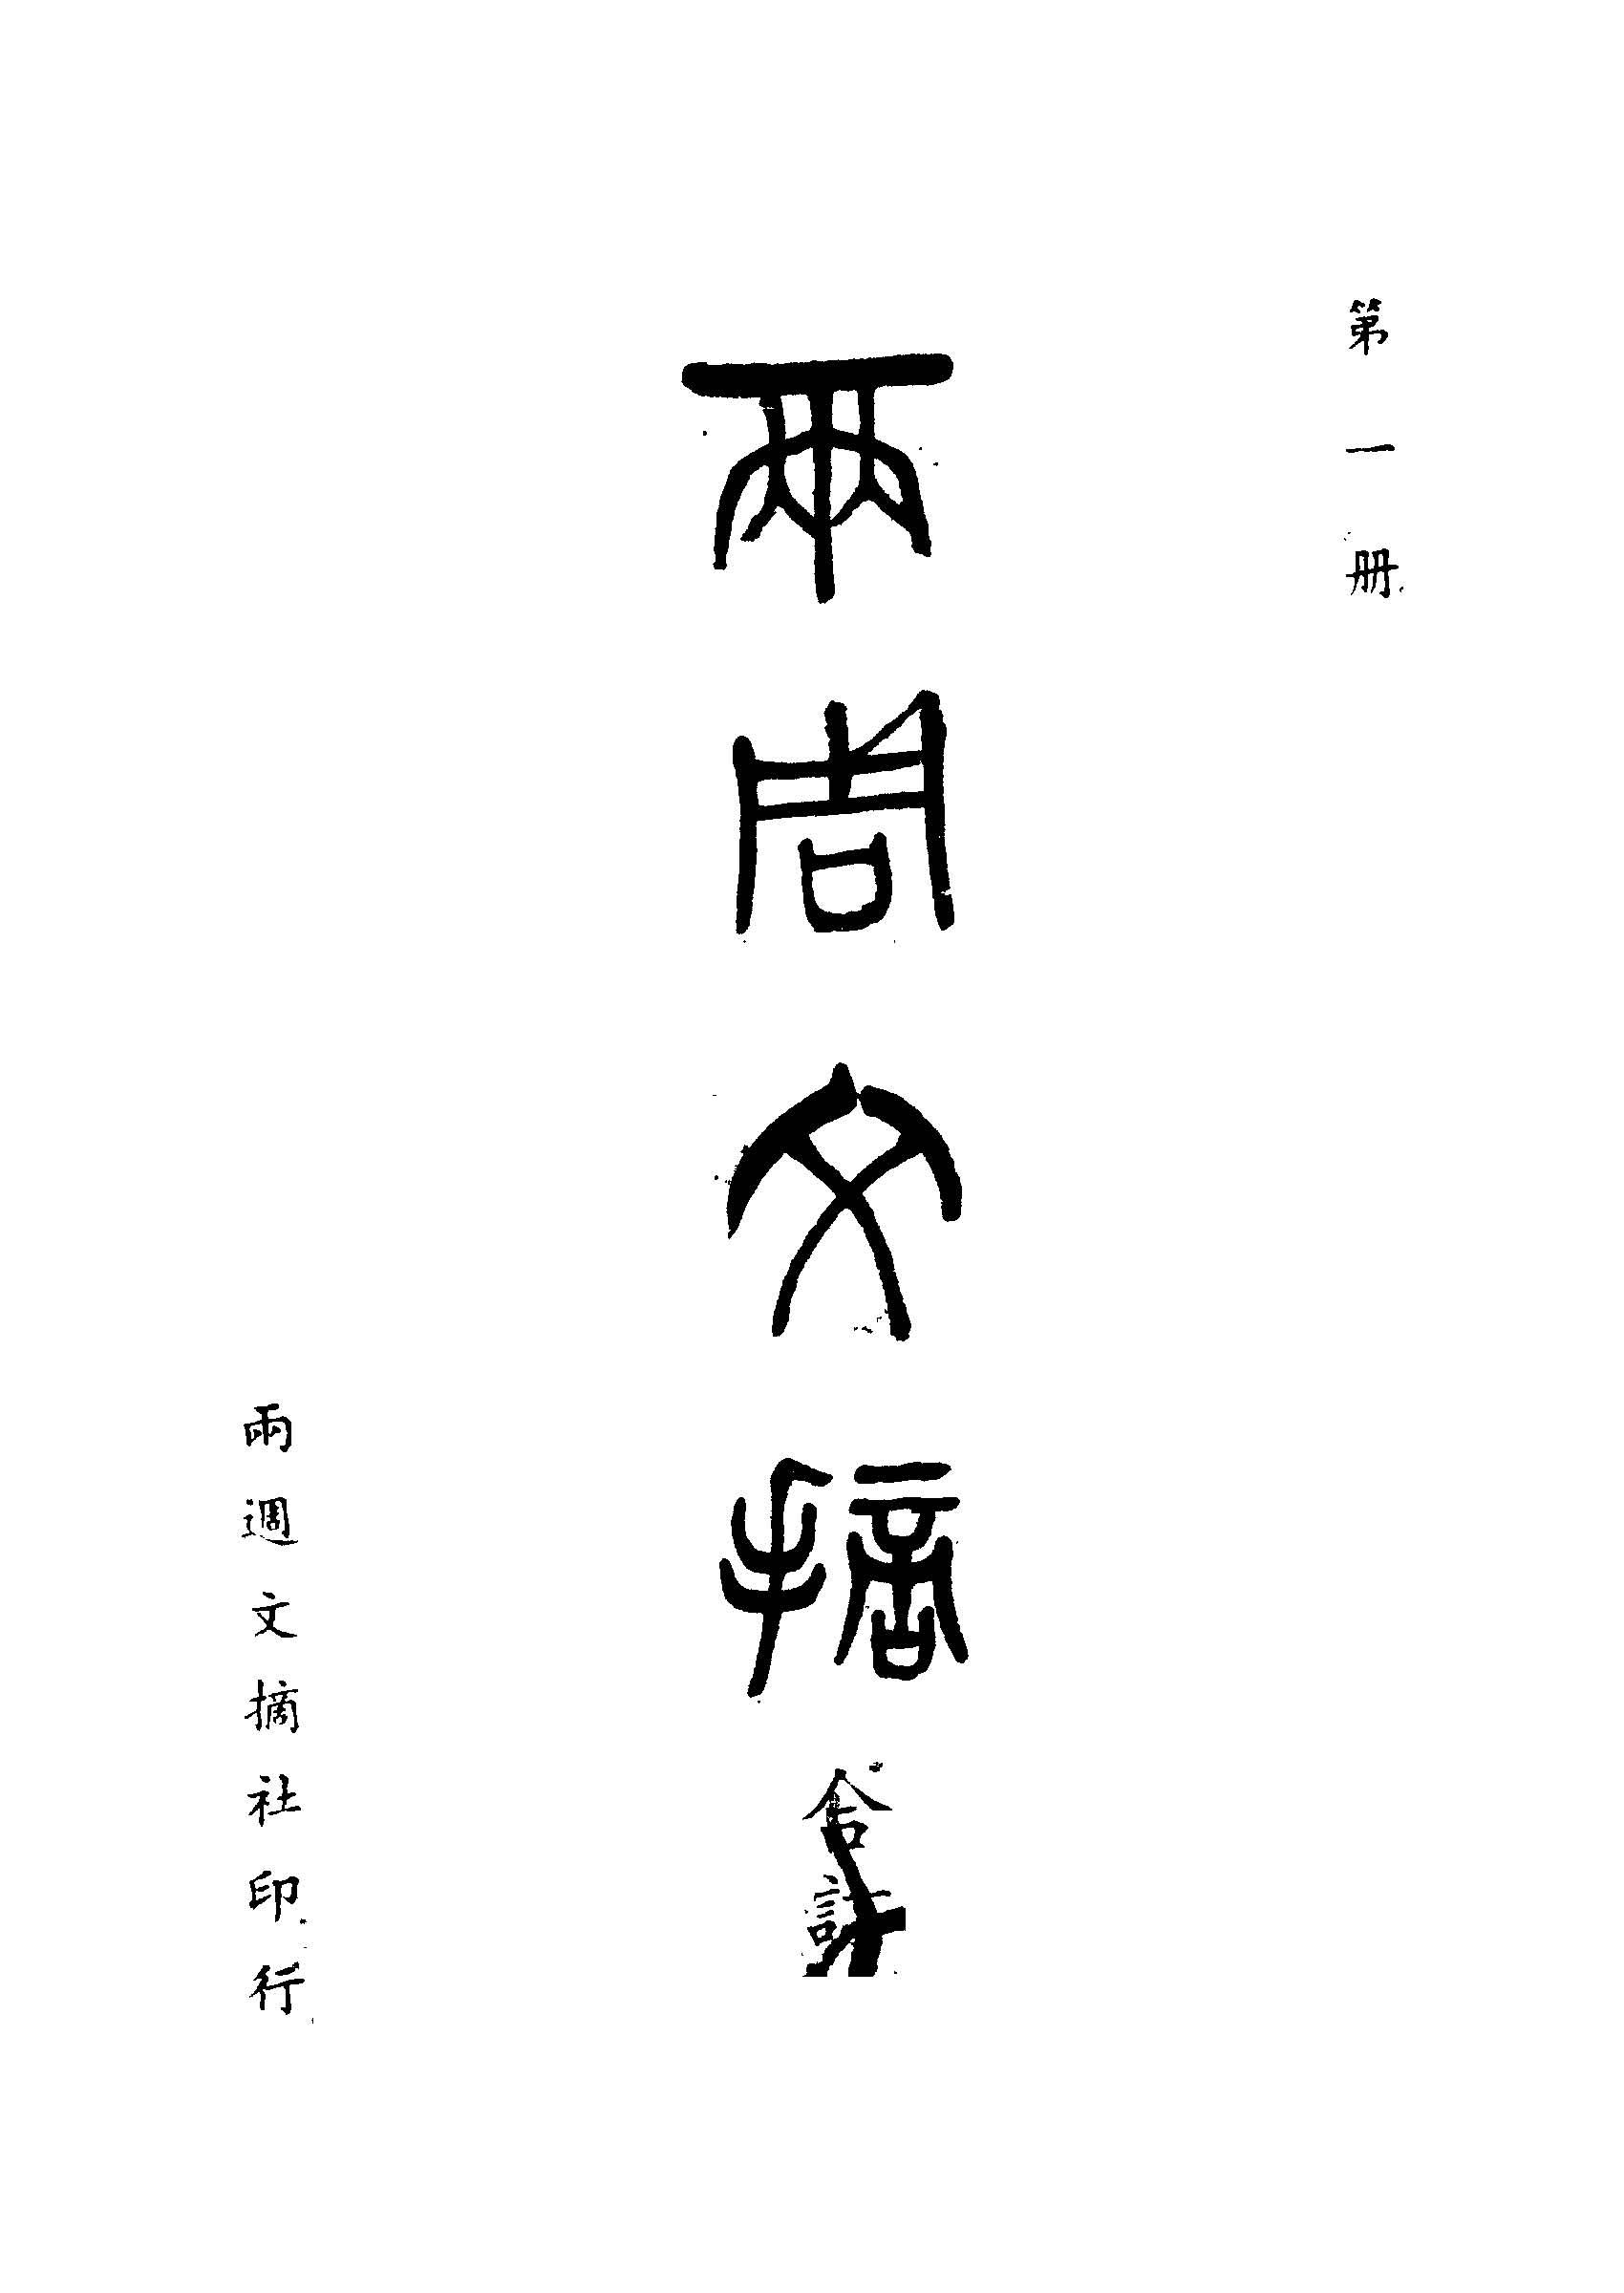 第一册
兩周文摘
合訂
兩週文摘社印行